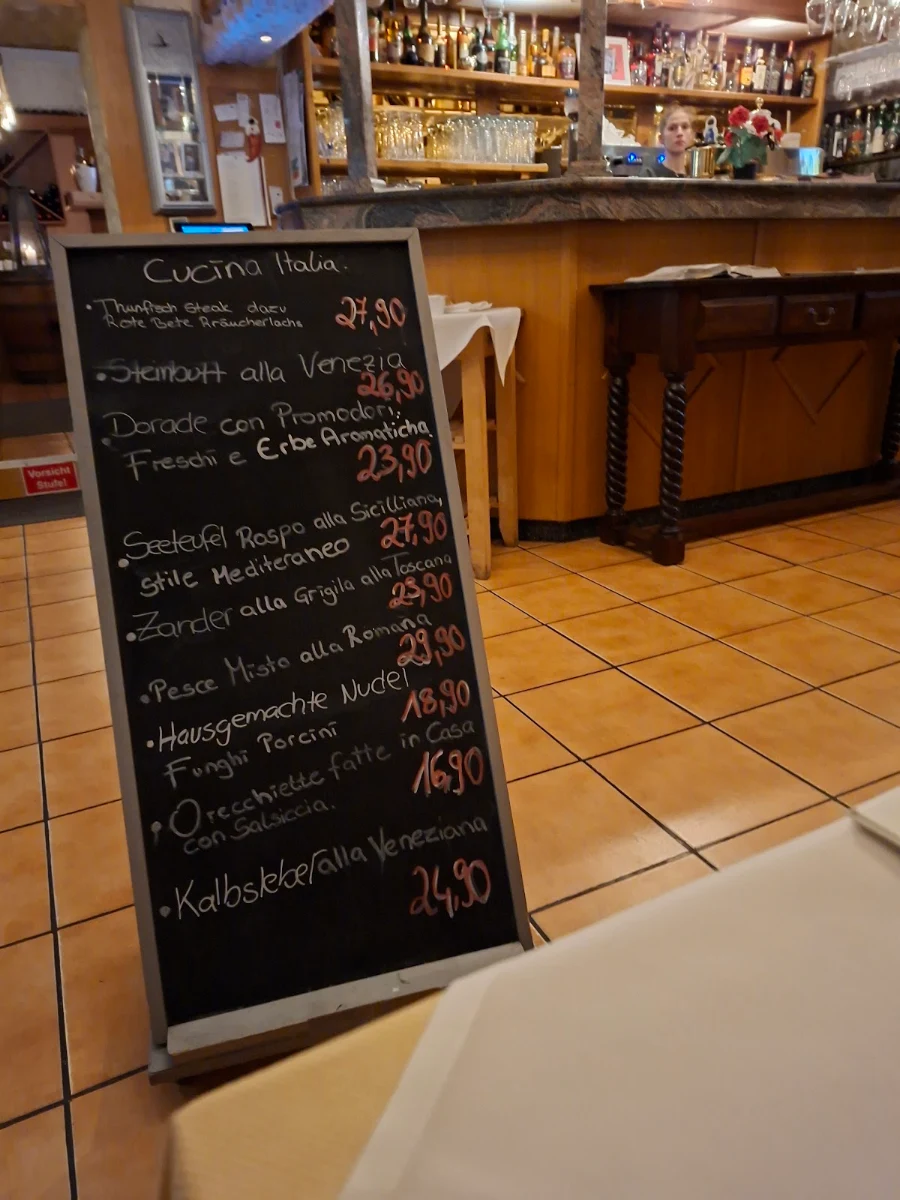 Cucina Italia.
• Thunfisch Steak dazu
Rote Bete Rräucherlachs
27,90
• Steinbutt alla Venezia
26,90
• Dorade con Promodori
Freschi e Erbe Aromaticha
23,90
• Seeteufel Rospo alla Sicilliana,
stile Mediteraneo
27,90
• Zander alla Grigila alla Toscana
23,90
• Pesce Misto alla Romana
29,90
• Hausgemachte Nudel
Funghi Porcini
18,90
• Orecchiette fatte in Casa
con Salsiccia.
16,90
• Kalbsleber alla Veneziana
24,90
Vorsicht
Stufe!